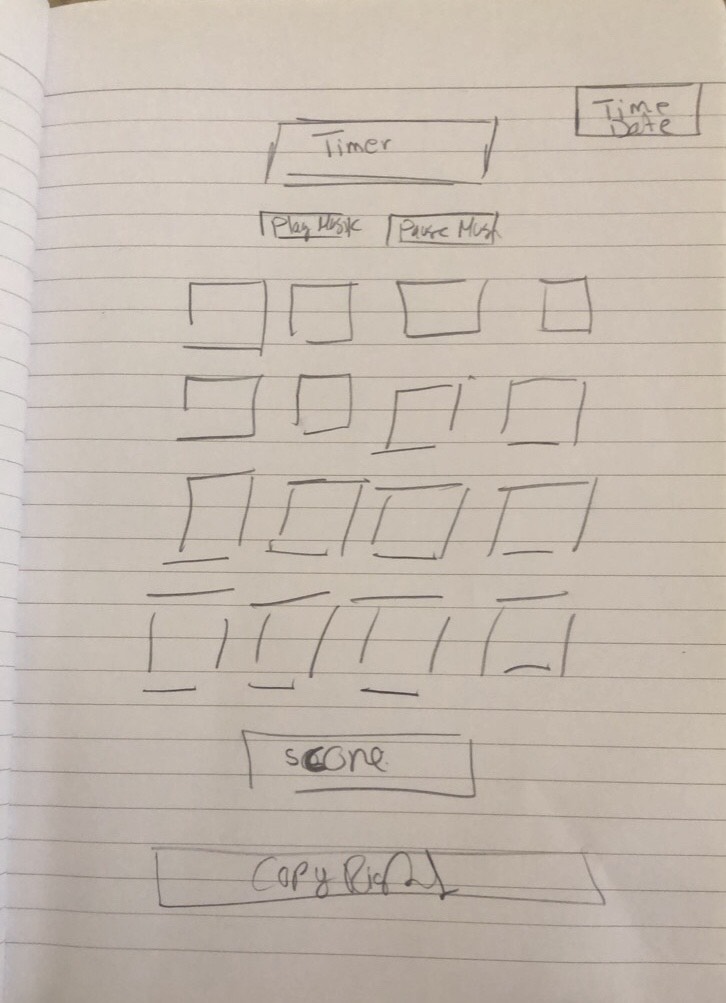 Time
Date
Timer
Play Music
Pause Music
score
Copy Right